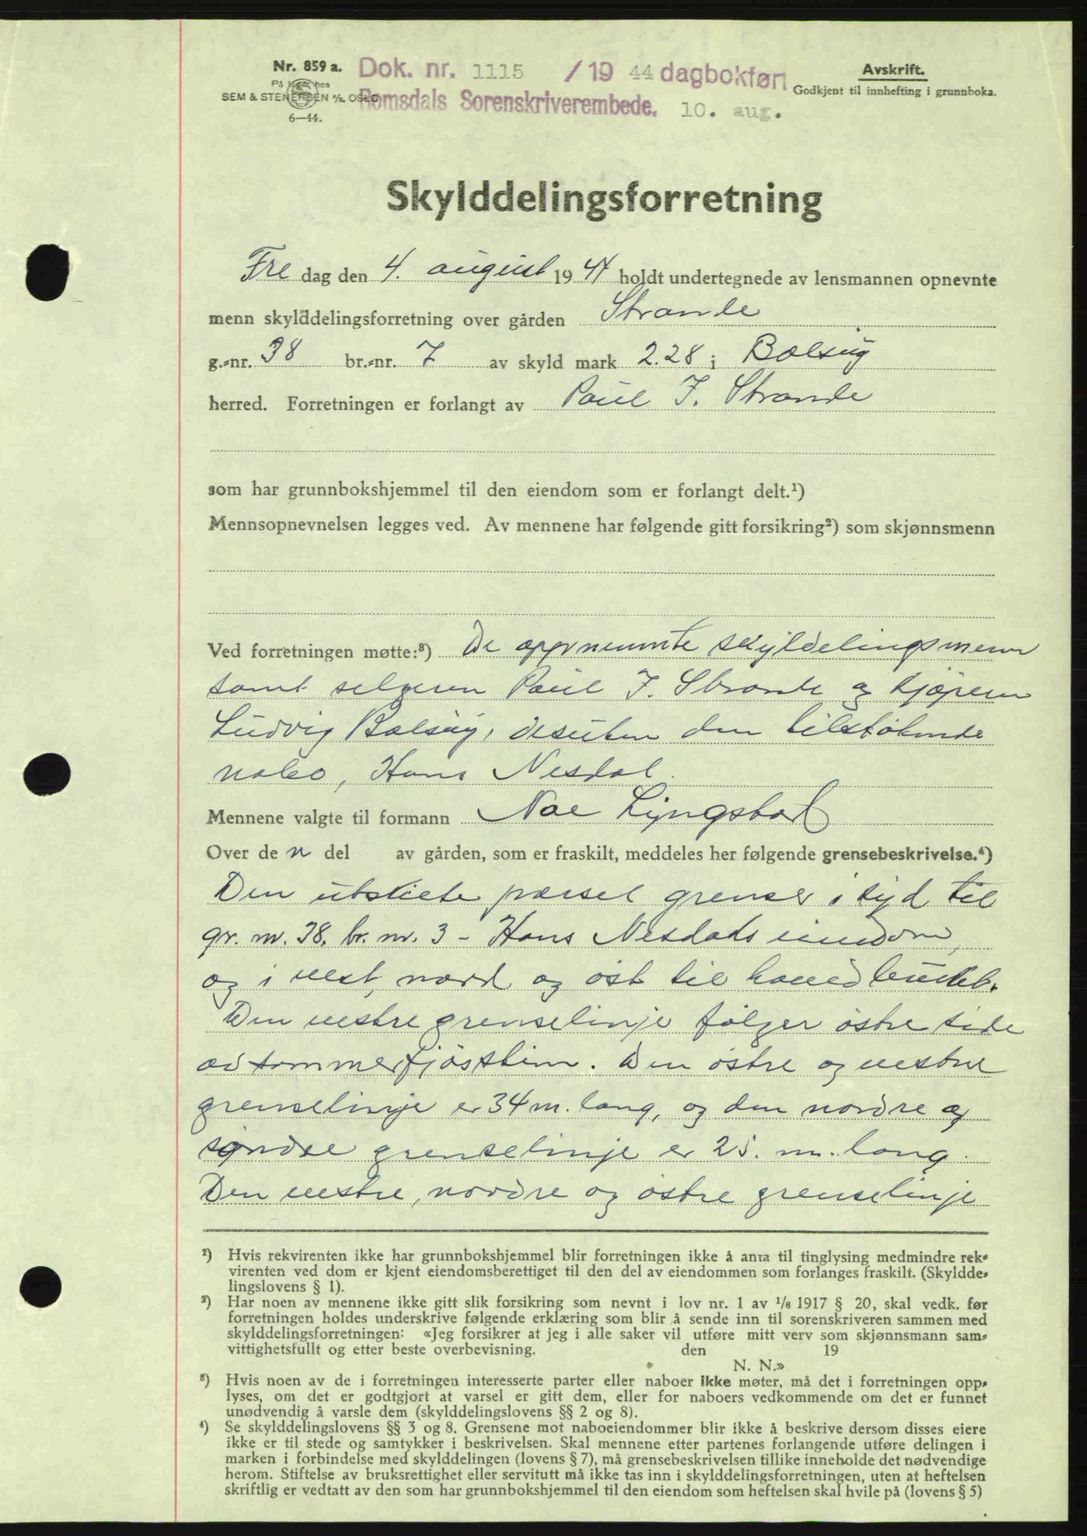 Nr. 859 a.
På lager hos
SEM & STENERSEN A/S, OSLO
6—44.
Dok. nr. 1115 /19 44 dagbokført
Romsdals Sorenskriverembede. 10. aug.
Avskrift.
Godkjent til innhefting i grunnboka.
Skylddelingsforretning
Fre dag den 4. august 19 44 holdt undertegnede av lensmannen opnevnte
menn skylddelingsforretning over gården Strande
g.-nr. 38 br.-nr. 7 av skyld mark 2.28 i Bolsøy
herred. Forretningen er forlangt av Paul J. Strande
som har grunnbokshjemmel til den eiendom som er forlangt delt.¹)
Mennsopnevnelsen legges ved. Av mennene har følgende gitt forsikring²) som skjønnsmenn
Ved forretningen møtte:³) De oppnevnte skyldelingsmenn
samt selgeren Paul J. Strande og kjøperen
Ludvig Bolsøy, desuten den tilstøtende
nabo, Hans Nesdal.
Mennene valgte til formann Noe Lyngstad
Over de n del av gården, som er fraskilt, meddeles her følgende grensebeskrivelse.⁴)
Den utskilte parsel grenser i syd til
gr. nr. 38, br. nr. 3 - Hans Nesdals eiendom,
og i vest, nord og øst til hovedbruket.
Den vestre grenselinje følger østre side
av sommerfjøsstien. Den østre og vestre
grenselinje er 34 m. lang, og den nordre og
søndre grenselinje er 25. m. lang.
Den vestre, nordre og østre grenselinje
¹) Hvis rekvirenten ikke har grunnbokshjemmel blir forretningen ikke å anta til tinglysing medmindre rek-
virenten ved dom er kjent eiendomsberettiget til den del av eiendommen som forlanges fraskilt. (Skyldde-
lingslovens § 1).
²) Har noen av mennene ikke gitt slik forsikring som nevnt i lov nr. 1 av 1/6 1917 § 20, skal vedk. før
forretningen holdes underskrive følgende erklæring som blir å sende inn til sorenskriveren sammen med
skylddelingsforretningen: «Jeg forsikrer at jeg i alle saker vil utføre mitt verv som skjønnsmann sam-
vittighetsfullt og etter beste overbevisning. den 19
N. N.»
³) Hvis noen av de i forretningen interesserte parter eller naboer ikke møter, må det i forretningen opp-
lyses, om det er godtgjort at varsel er gitt dem, eller for naboers vedkommende om det er funnet
unødvendig å varsle dem (skylddelingslovens §§ 2 og 8).
⁴) Se skylddelingslovens §§ 3 og 8. Grensene mot naboeiendommer blir ikke å beskrive dersom disses eiere
ikke er til stede og samtykker i beskrivelsen. Skal mennene etter partenes forlangende utføre delingen i
marken i forbindelse med skylddelingen (lovens § 7), må grensebeskrivelsen tillike inneholde det nødvendige
herom. Stiftelse av bruksrettighet eller servitutt må ikke tas inn i skylddelingsforretningen, uten at heftelsen
skriftlig er vedtatt av den som har grunnbokshjemmel til den eiendom som heftelsen skal hvile på (lovens § 5)